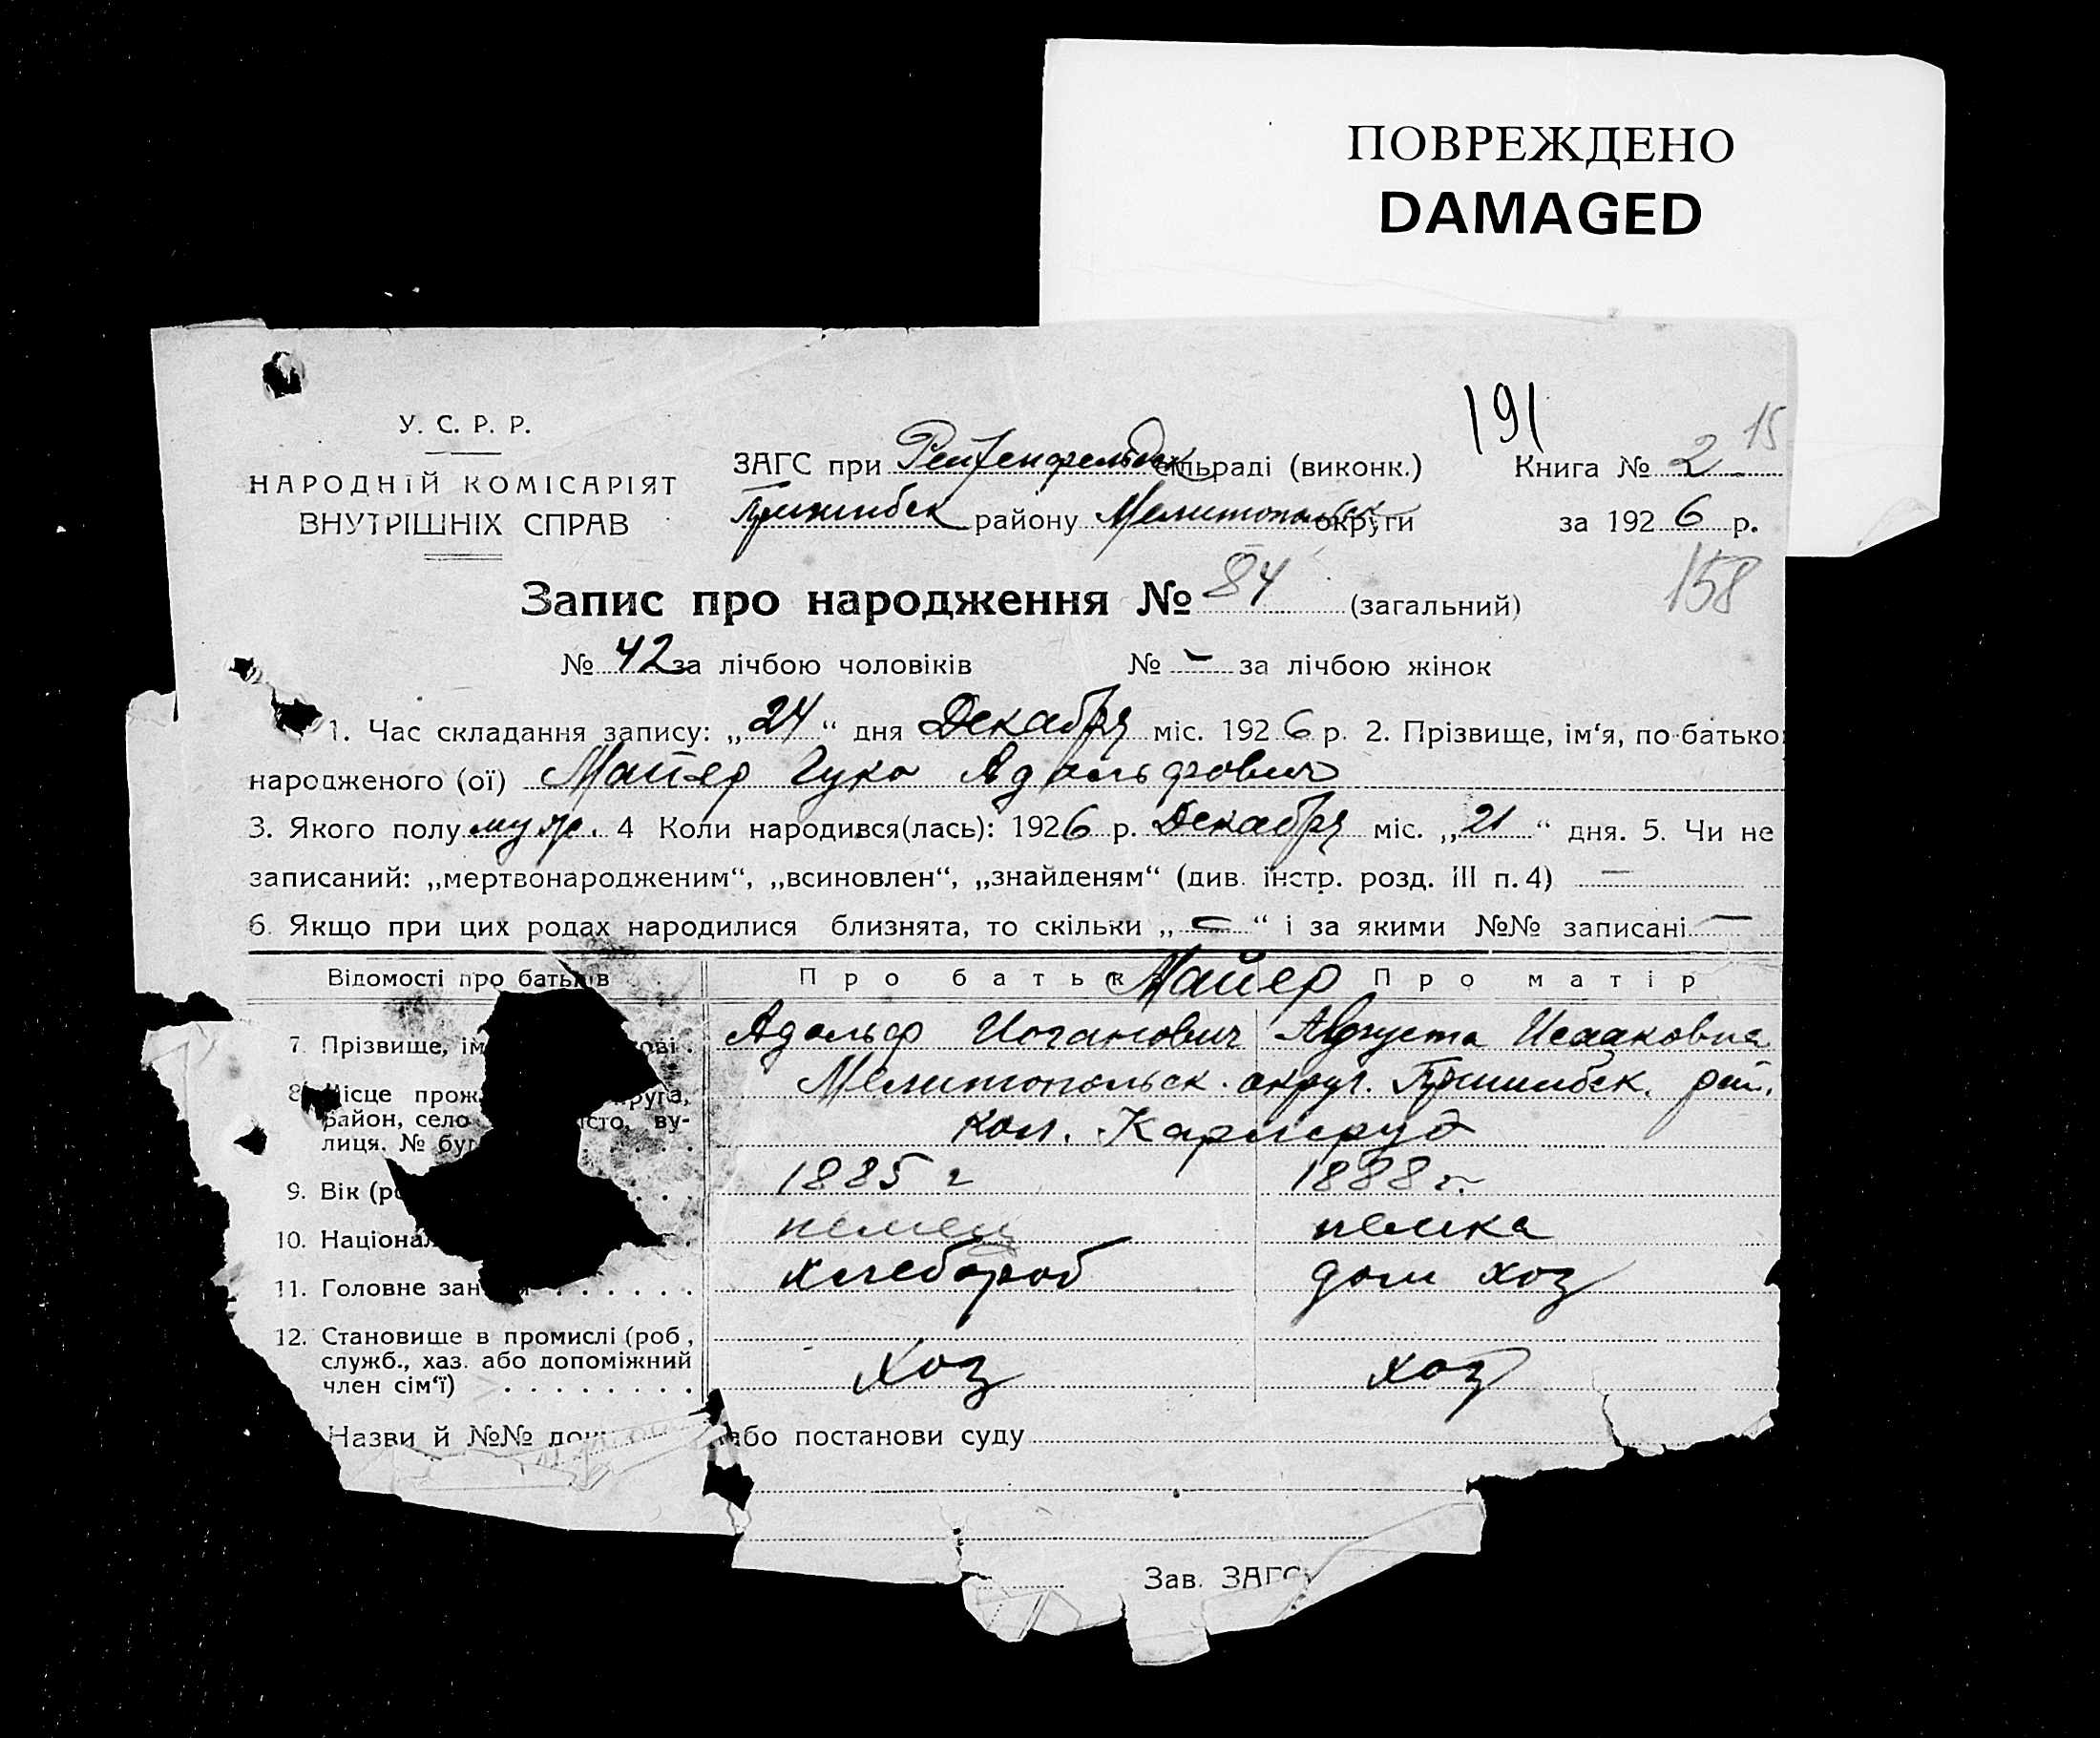 ПОВРЕЖДЕНО
DAMAGED
191
15
У. С. Р. Р.
НАРОДНІЙ КОМІСАРІЯТ
ВНУТРІШНІХ СПРАВ
ЗАГС при Рейхенфельдск сільраді (виконк.)
Книга № 2
Пришибск району Мелитопольск округи
за 1926 р.
158
Запис про народження № 84 (загальний)
№ 42 за лічбою чоловіків № – за лічбою жінок
1. Час складання запису: „24“ дня Декабря міс. 1926 р. 2. Прізвище, ім‘я, по-батько
народженого (ої) Майер Гуко Адольфович
3. Якого полу муж. 4 Коли народився(лась): 1926 р. Декабря міс. „21“ дня. 5. Чи не
записаний: „мертвонародженим“, „всиновлен“, „знайденям“ (див. інстр. розд. III п. 4) —
6. Якщо при цих родах народилися близнята, то скільки „–“ і за якими №№ записані —
Відомості про батьків
Про батьк Майер Про матір
7 Прізвище, ім ові .
Адольф Иоганович Августа Исааковна
8 Місце прож круга,
район, село сто, ву-
лиця. № бу
Мелитопольск. округ. Пришибск. рай.
кол. Карлсруэ
9. Вік (ро
1885 г 1888 г.
10. Націонал
немец немка
11. Головне зан
хлебороб дом хоз
12. Становище в промислі (роб.,
служб., хаз. або допоміжний
член сім‘ї)
хоз хоз
Назви й №№ док або постанови суду
Зав. ЗАГС